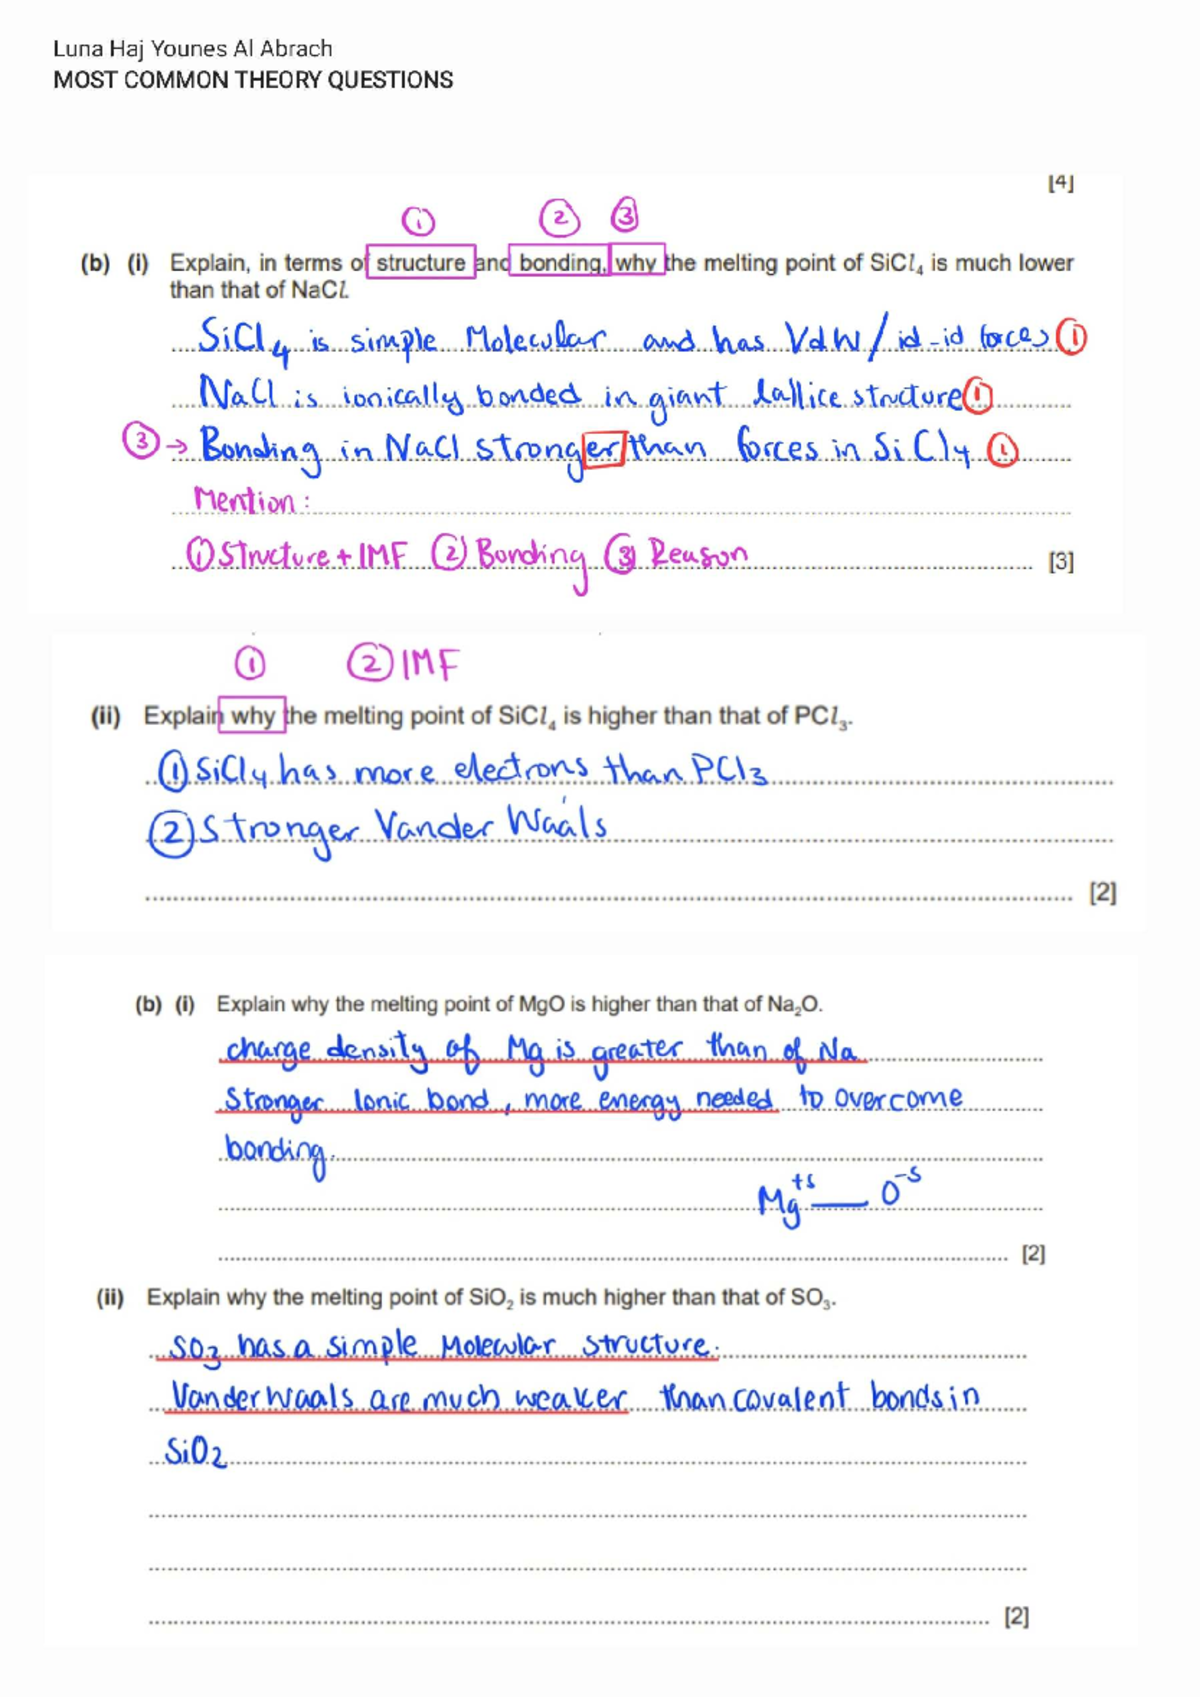 Luna Haj Younes Al Abrach
MOST COMMON THEORY QUESTIONS
[4]
① ② ③
(b) (i) Explain, in terms of structure and bonding, why the melting point of SiCl₄ is much lower
than that of NaCl.
SiCl₄ is simple Molecular and has VdW/id-id forces ①
NaCl is ionically bonded in giant lattice structure ①
③ → Bonding in NaCl stronger than forces in SiCl₄ ①
Mention:
① Structure + IMF ② Bonding ③ Reason [3]
① ② IMF
(ii) Explain why the melting point of SiCl₄ is higher than that of PCl₃.
① SiCl₄ has more electrons than PCl₃
② Stronger Vander Waals
[2]
(b) (i) Explain why the melting point of MgO is higher than that of Na₂O.
charge density of Mg is greater than of Na
Stronger Ionic bond, more energy needed to overcome
bonding.
Mg⁺ˢ — O⁻ˢ
[2]
(ii) Explain why the melting point of SiO₂ is much higher than that of SO₃.
SO₃ has a simple Molecular structure.
Vander Waals are much weaker than covalent bonds in
SiO₂
[2]